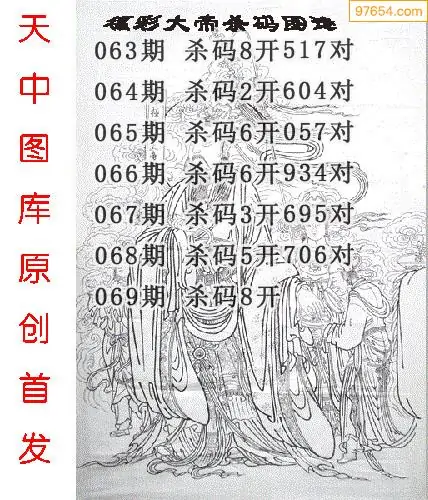 97654.com
福彩大帝杀码图谜
063期 杀码8开517对
064期 杀码2开604对
065期 杀码6开057对
066期 杀码6开934对
067期 杀码3开695对
068期 杀码5开706对
069期 杀码8开
天中图库原创首发